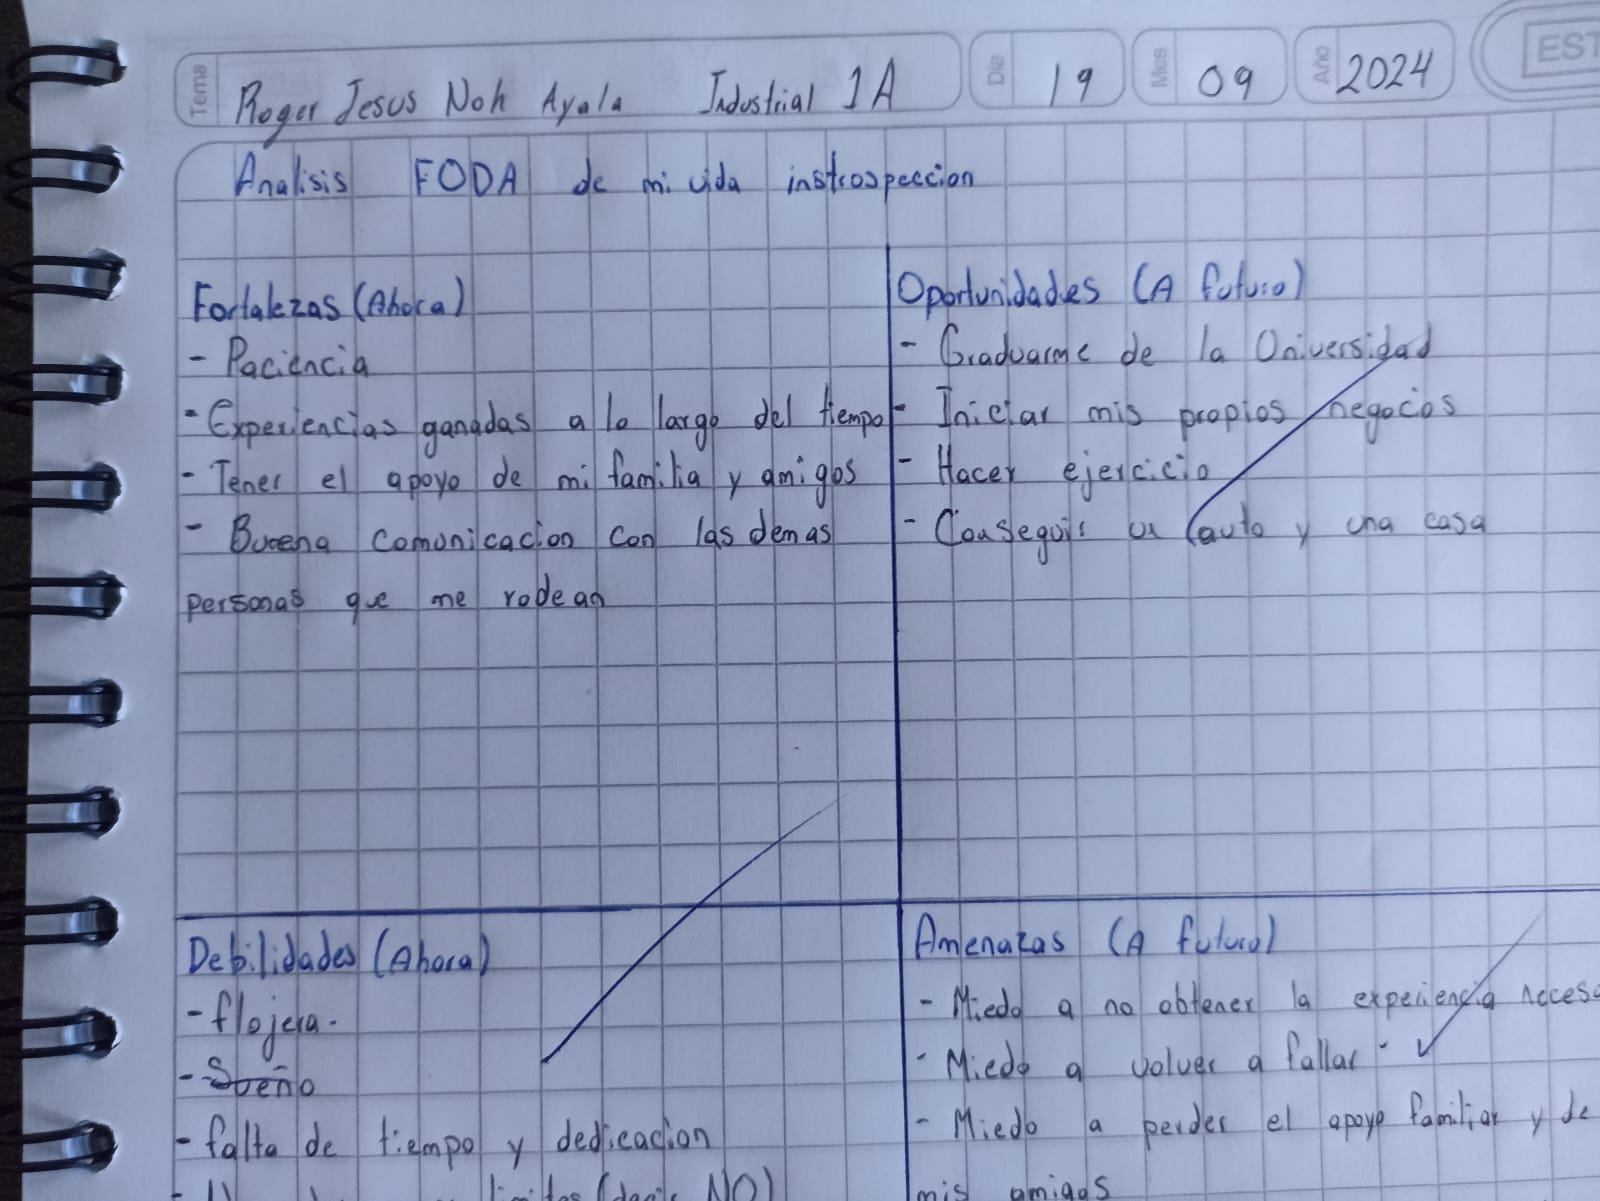 Tema Roger Jesus Noh Ayala Industrial 1A Dia 19 Mes 09 Año 2024 EST
Analisis FODA de mi vida instrospeccion
Fortalezas (Ahora)
- Paciencia
- Experiencias ganadas a lo largo del tiempo
- Tener el apoyo de mi familia y amigos
- Buena comunicacion con las demas
personas que me rodean
Oportunidades (A futuro)
- Graduarme de la Universidad
- Iniciar mis propios negocios
- Hacer ejercicio
- Conseguir un auto y una casa
Debilidades (Ahora)
- flojera.
- Sueño
- falta de tiempo y dedicacion
(decir NO)
Amenazas (A futuro)
- Miedo a no obtener la experiencia neces
- Miedo a volver a fallar
- Miedo a perder el apoyo familiar y de
mis amigos